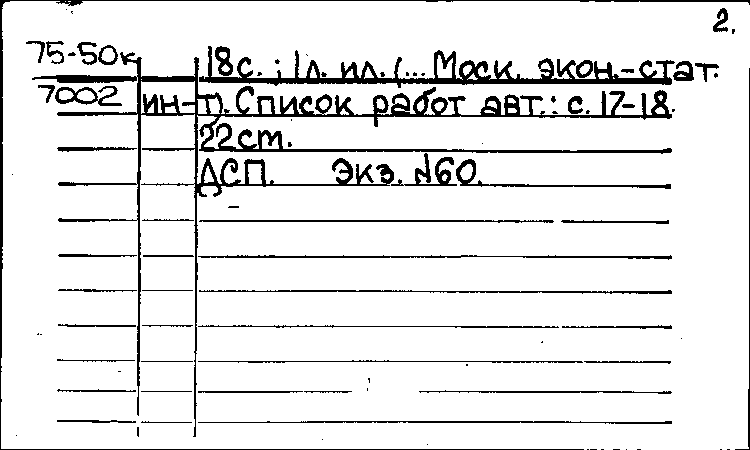 2.
75-50к
18с. ; 1л. ил. (... Моск. экон.-стат.
7002
ин-т). Список работ авт.: с. 17-18.
22ст.
ДСП. Экз. №60.